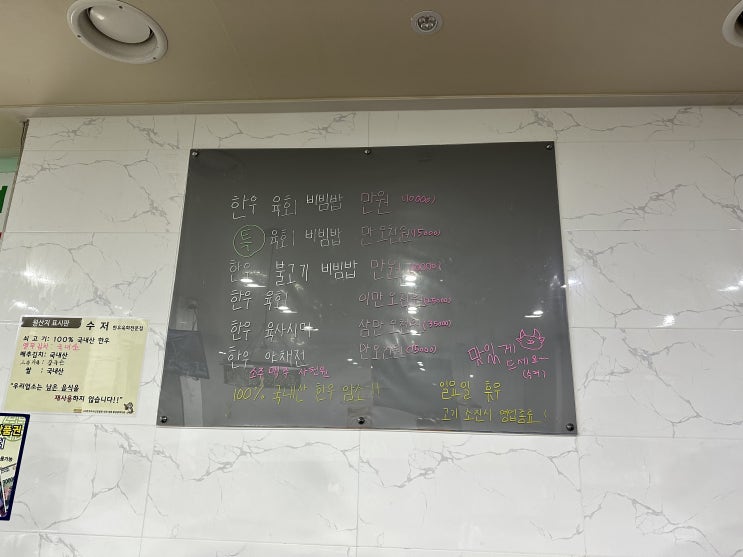 한우 육회 비빔밥 만원 (10000)
특 육회 비빔밥 만 오천원 (15000)
한우 불고기 비빔밥 만원 (10000)
한우 육회 이만 오천원 (25000)
한우 육사시미 삼만 오천원 (35000)
한우 야채전 만 오천원 (15000)
소주 맥주 사천원
100% 국내산 한우 암소!!
맛있게
드세요~
일요일 휴무
고기 소진시 영업종료!
원산지 표시판 수저 한우육회전문점
쇠고기: 100% 국내산 한우
배추김치: 국내산
쌀 : 국내산
"우리업소는 남은 음식을
재사용하지 않습니다!!"